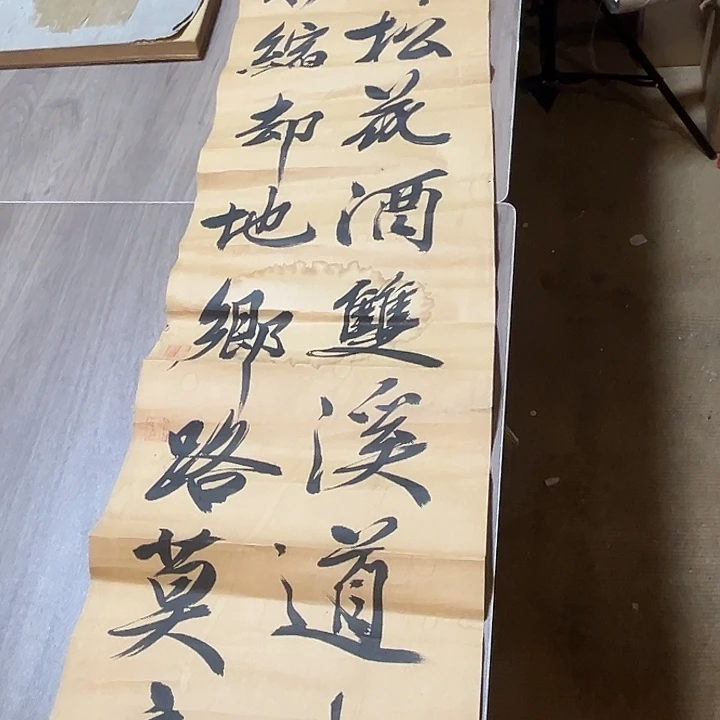 松花酒雙溪道
縮却地鄉路莫